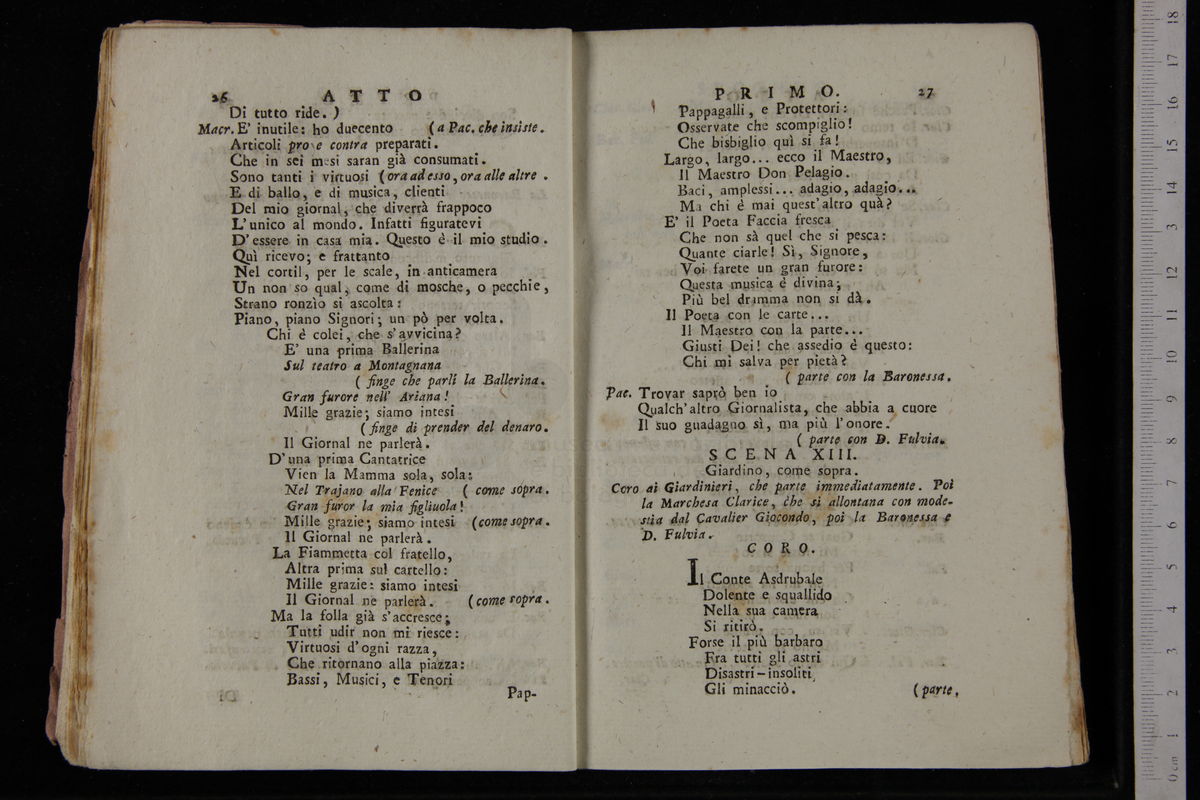 26 ATTO
Di tutto ride. )
Macr. E' inutile: ho duecento ( a Pac. che insiste.
Articoli pro e contra preparati.
Che in sei mesi saran già consumati.
Sono tanti i virtuosi ( ora ad esso, ora alle altre .
E di ballo, e di musica, clienti
Del mio giornal, che diverrà frappoco
L'unico al mondo. Infatti figuratevi
D'essere in casa mia. Questo è il mio studio.
Quì ricevo; e frattanto
Nel cortil, per le scale, in anticamera
Un non so qual, come di mosche, o pecchie,
Strano ronzìo si ascolta:
Piano, piano Signori; un pò per volta.
Chi è colei, che s'avvicina?
E' una prima Ballerina
Sul teatro a Montagnana
( finge che parli la Ballerina.
Gran furore nell' Ariana!
Mille grazie; siamo intesi
( finge di prender del denaro.
Il Giornal ne parlerà.
D'una prima Cantatrice
Vien la Mamma sola, sola:
Nel Trajano alla Fenice ( come sopra.
Gran furor la mia figliuola!
Mille grazie; siamo intesi ( come sopra.
Il Giornal ne parlerà.
La Fiammetta col fratello,
Altra prima sul cartello:
Mille grazie: siamo intesi
Il Giornal ne parlerà. ( come sopra.
Ma la folla già s'accresce;
Tutti udir non mi riesce:
Virtuosi d'ogni razza,
Che ritornano alla piazza:
Bassi, Musici, e Tenori
Pap-
PRIMO. 27
Pappagalli, e Protettori:
Osservate che scompiglio!
Che bisbiglio quì si fa!
Largo, largo... ecco il Maestro,
Il Maestro Don Pelagio.
Baci, amplessi... adagio, adagio...
Ma chi è mai quest'altro quà?
E' il Poeta Faccia fresca
Che non sà quel che si pesca:
Quante ciarle! Sì, Signore,
Voi farete un gran furore:
Questa musica è divina;
Più bel dramma non si dà.
Il Poeta con le carte...
Il Maestro con la parte...
Giusti Dei! che assedio è questo:
Chi mi salva per pietà?
( parte con la Baronessa.
Pac. Trovar saprò ben io
Qualch'altro Giornalista, che abbia a cuore
Il suo guadagno sì, ma più l'onore.
( parte con D. Fulvia.
SCENA XIII.
Giardino, come sopra.
Coro di Giardinieri, che parte immediatamente. Poi
la Marchesa Clarice, che si allontana con mode-
stia dal Cavalier Giocondo, poi la Baronessa e
D. Fulvia.
CORO.
Il Conte Asdrubale
Dolente e squallido
Nella sua camera
Si ritirò.
Forse il più barbaro
Fra tutti gli astri
Disastri-insoliti
Gli minacciò. ( parte,
0 cm 1 2 3 4 5 6 7 8 9 10 11 12 13 14 15 16 17 18